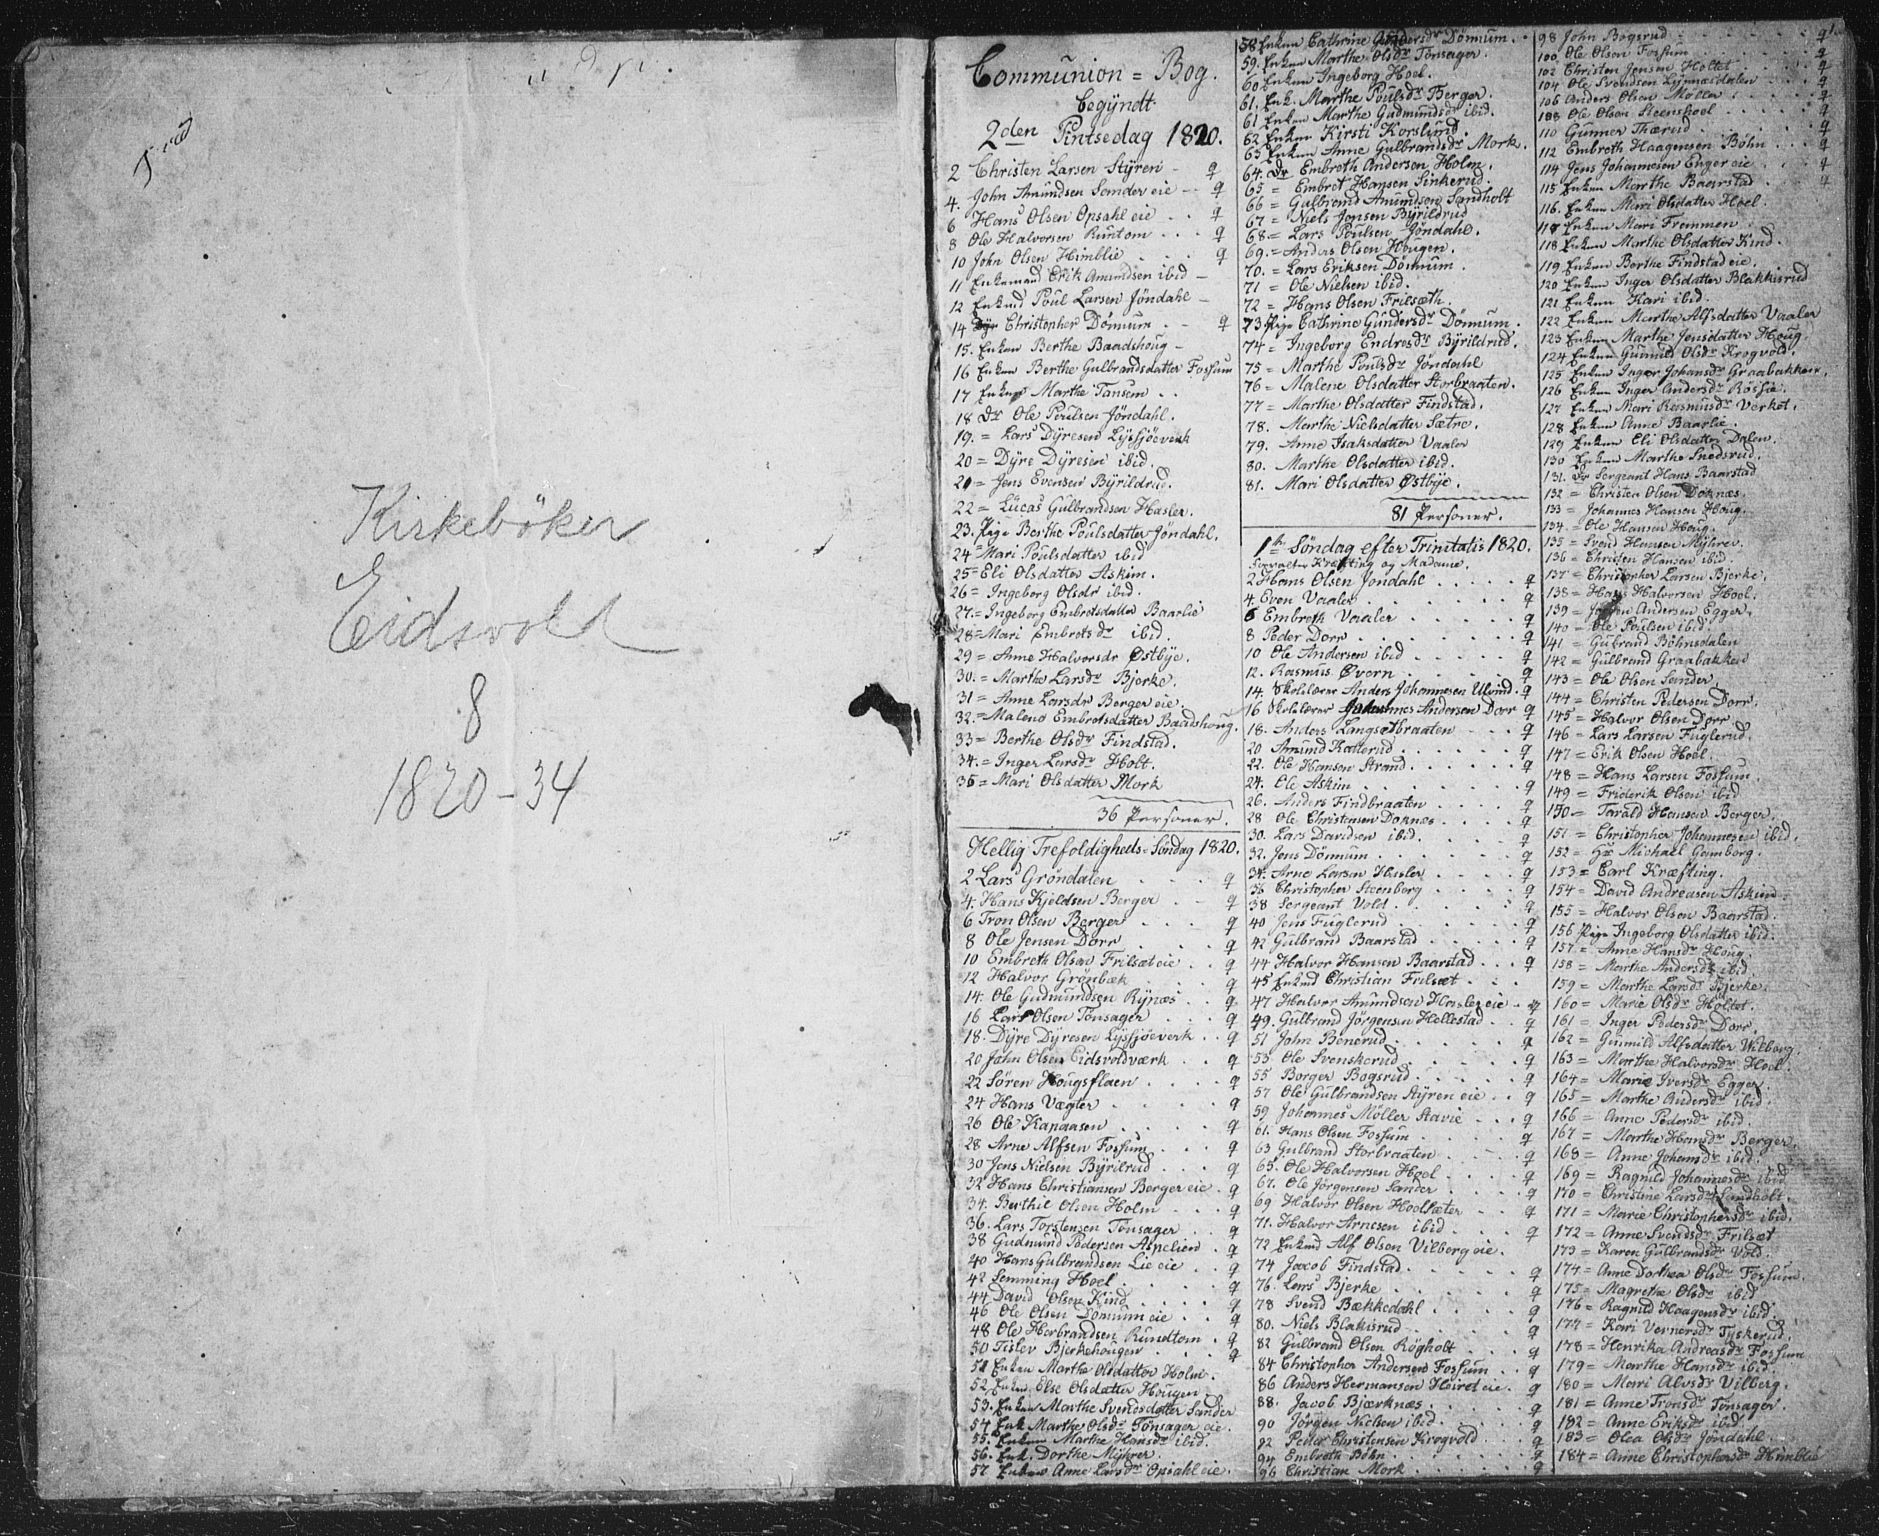 Kirkebøker
Eidsvold
8
1820-34
Communion = Bog.
begÿndt
2den Pintsedag 1820.
2 Christen Larsen Stÿren - q
4. John Amundsen Sander eie - - q
6 Hans Olsen Opsahl eie . . q
8 Ole Halvorsen Runtom . . . q
10 John Olsen Himblie . . . q
11 Enkemand Erik Amundsen ibid -
12 Enkmd Poul Larsen Jøndahl -
14 Christopher Dønnum . . q
15. Enken Berthe Baadshoug -
16 Enken Berthe Gulbrandsdatter Fossum
17 Enken Marthe Tansem . .
18 Dr Ole Poulsen Jøndahl.
19. = Lars Dÿresen Lÿsjøeverk
20 = Dÿre Dÿresen ibid.
21 = Jens Evensen Bÿrildrud.
22 = Lucas Gulbrandsen Hasler.
23. Pige Berthe Poulsdatter Jøndahl.
24 = Mari Poulsdatter ibid
25 = Eli Olsdatter Askim.
26 = Ingeborg Olsdr ibid.
27. = Ingeborg Embretsdatter Baarlie
28 = Mari Embretsdr ibid.
29 = Anne Halvorsdr Østbÿe.
30. = Marthe Larsdr Bjerke.
31 = Anne Larsdr Berger eie.
32. = Malene Embretsdatter Baadshoug.
33 = Berthe Olsdr Findstad.
34. = Inger Larsdr Holt.
36 = Mari Olsdatter Mork
36 Personer.
Hellig Trefoldigheds-Søndag 1820.
2 Lars Grøndalen . . . q
4. Hans Kjeldsen Berger . - q
6 Tron Olsen Berger . . . q
8 Ole Jensen Dorr . . . q
10 Embreth Olsen Frilsæt eie . . q
12 Halvor Grønbæk . . . q
14. Ole Gudmundsen Rÿnæs . . q
16 Lars Olsen Tønsager . . . q
18. Dÿre Dÿresen Lÿsjøeverk . . q
20 John Olsen Eidsvoldværk . . q
22 Søren Hougsflaen . . . . q
24 Hans Vægter . . . . q
26 Ole Kapaasen . . . . q
28 Arne Alfsen Fossum . . . q
30 Jens Nielsen Bÿrilrud . . . q
32 Hans Christiansen Berger eie . q
34. Berthil Olsen Holm . . . q
36. Lars Torstensen Tønsager . . q
38 Gudmund Pedersen Aspelien . q
40 Hans Gulbrandsen Lie eie . . q
42 Lemming Hoel . . . . q
44 David Olsen Kind . . . . q
46 Ole Olsen Dønnum eie . . . q
48 Ole Herbrandsen Rundtom . q
50 Tislev Bjerkehougen . . . q
51 Enken Marthe Olsdatter Holm.
52. Enken Else Olsdatter Hougen
53. Enken Marthe Svendsdatter Sander
54 Enk Marthe Olsdr Tønsager eie.
55. Enken Marthe Hansdr ibid.
56. Enk. Dorthe Mÿhrer.
57 Enken Anne Larsdr Opsahl eie.
58 Enken Cathrine Gundersdr Dönnum.
59. Enken Marthe Olsdr Tonsager.
60 Enken Ingeborg Hoel.
61. Enk. Marthe Poulsdr Berger.
61 Enken Marthe Gudmundsdr ibid.
62 Enken Kirsti Korslund.
63 Enken Anne Gulbrandsdr Mork.
64. Dr Embreth Andersen Holm.
65 = Embret Hansen Sinkerud.
66 = Gulbrand Amundsen Sandholt
67 = Niels Jonsen Bÿrildrud
68 = Lars Poulsen Jöndahl.
69. = Anders Olsen Hougen.
70. = Lars Eriksen Dönnum.
71 = Ole Nielsen ibid.
72 = Hans Olsen Frilsæth.
73 Pige Cathrine Gundersdr Dönnum.
74 = Ingeborg Endresdr Bÿrildrud.
75 = Marthe Poulsdr Jöndahl
76 = Malene Olsdatter Storbraaten.
77 = Marthe Olsdatter Findstad.
78. Marthe Nielsdatter Sætre.
79. Anne Isaksdatter Vaaler
80. Marthe Olsdatter ibid.
81. Mari Olsdatter Østbÿe.
81 Personer.
1te Søndag efter Trinitatis 1820.
Forvalter Kræfting og Madame.
2 Hans Olsen Jöndahl . . . . q
4. Even Vaaler . . . . q
6 Embreth Vaaler . . . . q
8 Peder Dorr . . . . q
10 Ole Andersen ibid . . . . q
12. Rasmus Øvern . . . . q
14. Skolelærer Anders Johannesen Ulvind . q
16 Skolelærer Johannes Andersen Dorr q
18. Anders Langsætbraaten . . . q
20 Amund Katterud . . . . q
22. Ole Hansen Strand . . . . q
24. Ole Askim . . . . q
26. Anders Findbraaten . . . . q
28 Ole Christensen Doknæs . . . q
30. Lars Davidsen ibid. . . . q
32. Jens Dönnum . . . . q
34. Arne Larsen Hasler . . . . q
36 Christopher Steenberg . . . . q
38 Sergeant Vold . . . . q
40 Jens Fuglerud . . . . q
42 Gulbrand Baarstad . . . . q
44 Halvor Hansen Baarstad . . . q
45 Enkmd Christian Frilsæt . . .
47 Halvor Amundsen Hasler eie - q
49. Gulbrand Jörgensen Hellestad . . q
51 John Benerud . . . . q
53 Ole Svenskerud . . . . q
55 Borger Bogsrud . . . . q
57 Ole Gulbrandsen Stÿren eie . . q
59 Johannes Möller Stavie . . . q
61. Hans Olsen Fossum . . . . q
63 Gulbrand Storbraaten . . . . q
65. Ole Halvorsen Hoel . . . . q
67. Ole Jörgensen Sander . . . . q
69 Halvor Olsen Hoelsæter . . . q
71. Halvor Arnesen ibid . . . . q
72 Enkmd Alf Olsen Vilberg eie.
74 Jacob Findstad . . . . q
76. Lars Bjerke . . . . q
78 Svend Bækkedahl . . . . q
80. Niels Blakisrud . . . . q
82 Gulbrand Olsen Rögholt . . . q
84 Christopher Andersen Fossum . . q
86 Anders Hermansen Heiret eie . q
88. Jacob Bjærknæs . . . . q
90 Jörgen Nielsen ibid. . . . q
92 Peder Christensen Krogvold . . q
94 Embreth Böhn . . . . q
96 Christian Mork . . . . q
98 John Bogsrud . . . . q
100 Ole Olsen Fossum . . . . q
102 Christen Jensen Holtet . . . q
104 Ole Svendsen Lÿnnæsdalen . . q
106 Anders Olsen Møller . . . . q
108 Ole Olsen Steenskoel . . . . q
110 Gunner Thærud . . . . q
112 Embreth Haagensen Böhn . . . q
114 Jens Johannesen Enger eie . . q
115 Enken Marthe Baarstad . . q
116. Enken Mari Olsdatter Hoel.
117 Enken Mari Fremmen.
118 Enken Marthe Olsdatter Kind.
119 Enken Berthe Findstad eie.
120 Enken Inger Olsdatter Blakkisrud
121 Enken Kari ibid.
122 Enken Marthe Alfsdatter Vaaler
123 Enken Marthe Jensdatter Houg.
124 Enken Gunild Olsdr Krogvold.
125 Enken Inger Johansdr Graabakken.
126 Enken Inger Andersdr Røisie.
127 Enken Mari Rasmusdr Verket.
128 Enken Anne Baarlie.
129 Enken Eli Olsdatter Dalen.
130 Enken Marthe Snedsrud.
131. Dr Sergeant Hans Baarstad
132 = Christen Olsen Doknæs.
133 = Johannes Hansen Houg.
134. = Ole Hansen Houg.
135 = Svend Hansen Mÿhrer.
136 = Christen Hansen ibid.
137 = Christopher Larsen Bjerke.
138 = Hans Halvorsen Hoel.
139 = Jörgen Andersen Egger.
140 = Ole Poulsen ibid.
141 = Gulbrand Böhnsdalen
142 = Gulbrand Graabakken
143 = Ole Olsen Sander.
144 = Christen Pedersen Dorr.
145 = Halvor Olsen Dorr.
146 = Lars Larsen Fuglerud.
147 = Erik Olsen Hoel.
148 = Hans Larsen Fossum.
149 = Friderik Olsen ibid
150 = Tarald Hansen Berger.
151 = Christopher Johannesen ibid.
152 = Hr Michael Gamborg.
153 = Carl Kræfting.
154 = David Andreasen Askim.
155 = Halvor Olsen Baarstad.
156 Pige Ingeborg Olsdatter ibid.
157 = Anne Hansdr Houg.
158 = Marthe Andersdr ibid.
159 = Marthe Larsdr Bjerke.
160 = Marie Olsdr Holtet.
161 = Inger Pedersdr Dorr.
162 = Gunnild Alfsdatter Vilberg.
163 = Marthe Halvorsdr Hoel.
164 = Marie Iversdr Egger.
165 = Marthe Andersdr ibid.
166 = Anne Pedersdr ibid.
167 = Marthe Hansdr Berger.
168 = Anne Johansdr ibid.
169 = Ragnild Johannesdr ibid
170 = Christine Larsdr Sandholt.
171 = Marie Christophersdr ibid.
172 = Anne Svendsdr Frilsæt
173 = Karen Gulbrandsdr Vold.
174 = Anne Dorthea Olsdr Fossum.
175 = Magrethe Olsdr ibid
176 = Ragnild Haagensdr ibid.
177 = Kari Vernersdr Tÿskerud.
178 = Henrika Andreasdr Fossum
179 = Marthe Hansdr ibid.
180 = Mari Alvsdr Vilberg.
181 = Anne Tronsdr Tønsager.
182 = Anne Eriksdr ibid
183 = Olea Olsdr Jöndahl.
184 = Anne Christophersdr Himblie